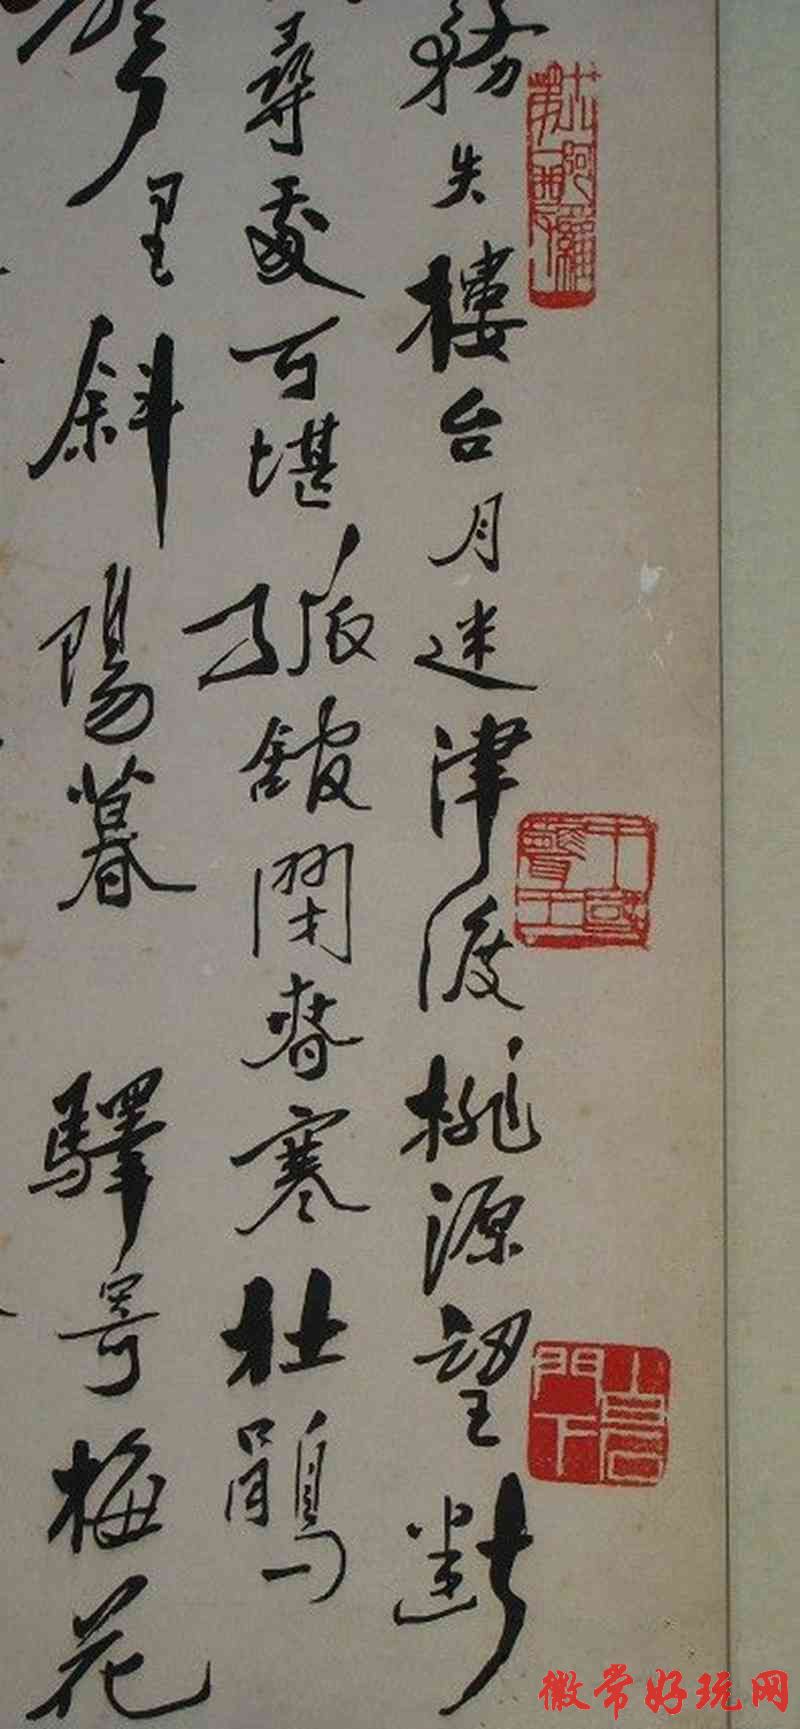 霧失樓台月迷津渡桃源望斷
尋處可堪孤館閉春寒杜鵑
里斜陽暮驛寄梅花
門下
徽常好玩网